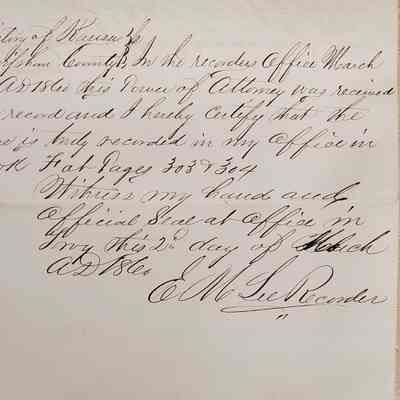 itory of Kansas Ss
lphan County In the recorders Office March
AD 1860 this Power of Attorney was received
record and I hereby Certify that the
e is truly recorded in my Office in
ook F at Pages 303 & 304
Witness my hand and
Official Seal at Office in
Troy this 2d day of March
AD 1860
E M Lee Recorder